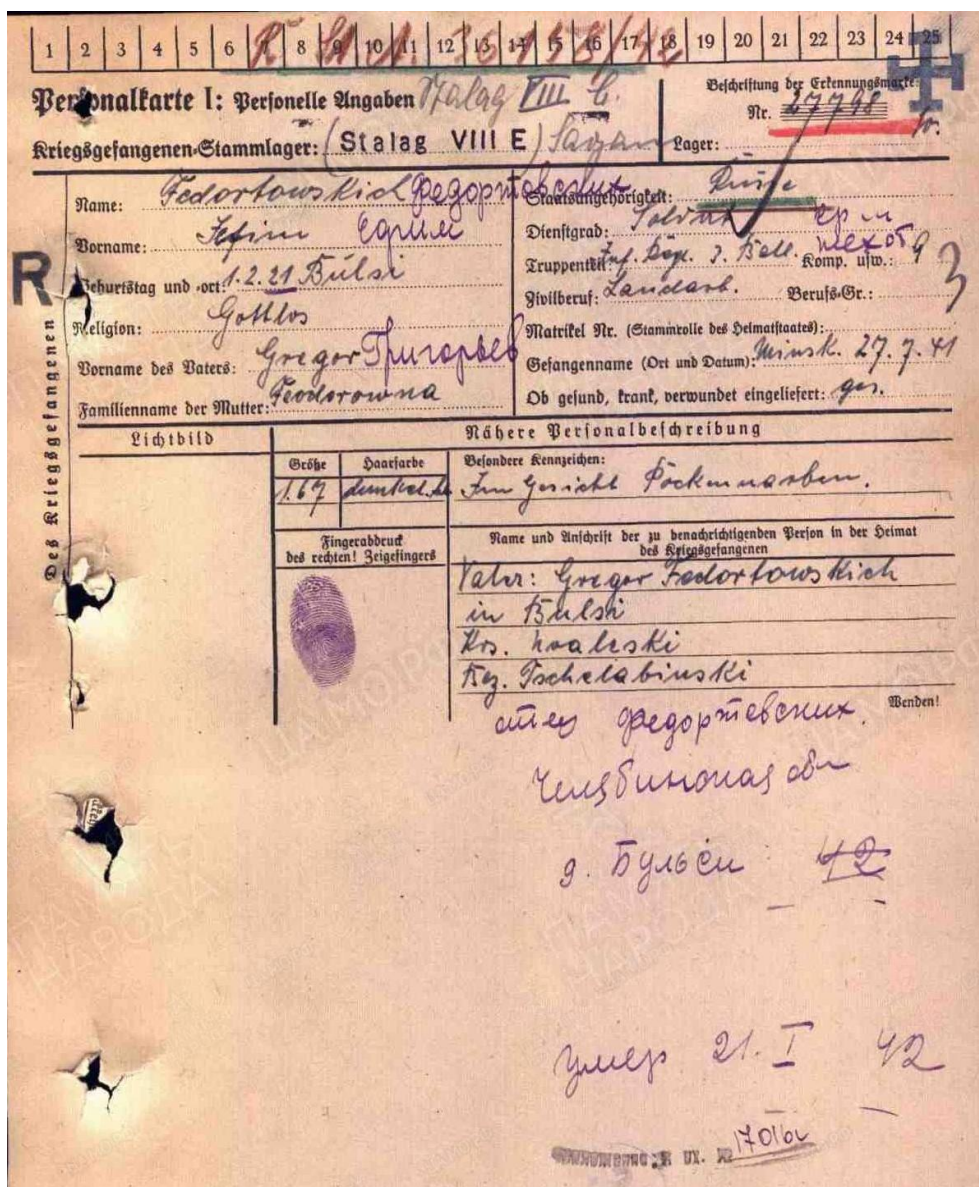 1 2 3 4 5 6 7 8 9 10 11 12 13 14 15 16 17 18 19 20 21 22 23 24 25
R St A.
Personalkarte I: Personelle Angaben Stalag VIII C.
Beschriftung der Erkennungsmarke:
Nr. 27798
Kriegsgefangenen-Stammlager: (Stalag VIII E) Sagan
Lager:
Name: Fedortowskich Федортовских
Vorname: Jefim Ефим
Geburtstag und -ort: 1.2.21 Bulsi
Religion: Gottlos
Vorname des Vaters: Gregor Григорьев
Familienname der Mutter: Feodorowna
Staatsangehörigkeit: Russe
Dienstgrad: Soldat
Truppenteil: Inf. Rgt. 3. Batl. Komp. usw.: 9
пехот
Zivilberuf: Landarb. Berufs-Gr.:
3
Matrikel Nr. (Stammrolle des Heimatstaates):
Gefangenname (Ort und Datum): Minsk. 27.7.41
Ob gesund, krank, verwundet eingeliefert: ges.
R
Des Kriegsgefangenen
Lichtbild
Nähere Personalbeschreibung
Größe Haarfarbe Besondere Kennzeichen:
1.67 dunkel. Im Gesicht Pockennarben.
Fingerabdruck
des rechten! Zeigefingers
Name und Anschrift der zu benachrichtigenden Person in der Heimat
des Kriegsgefangenen
Vater: Gregor Fedortowskich
in Bulsi
Krs. Uvaleski
Bez. Tschelabinski
Wenden!
отец Федортевских.
Челябинская обл
д. Бульси 42
умер 21. I 42